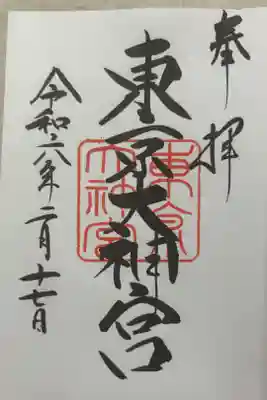 奉拝
東京大神宮
東京大神宮
令和六年二月十七日